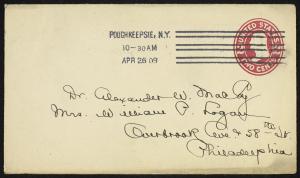 POUGHKEEPSIE, N.Y.
10-30AM
APR 26 09
UNITED STATES
TWO CENTS
Dr. Alexander W.
Mrs. William P. Logan
Overbrook Ave & 58th St.
Philadelphia